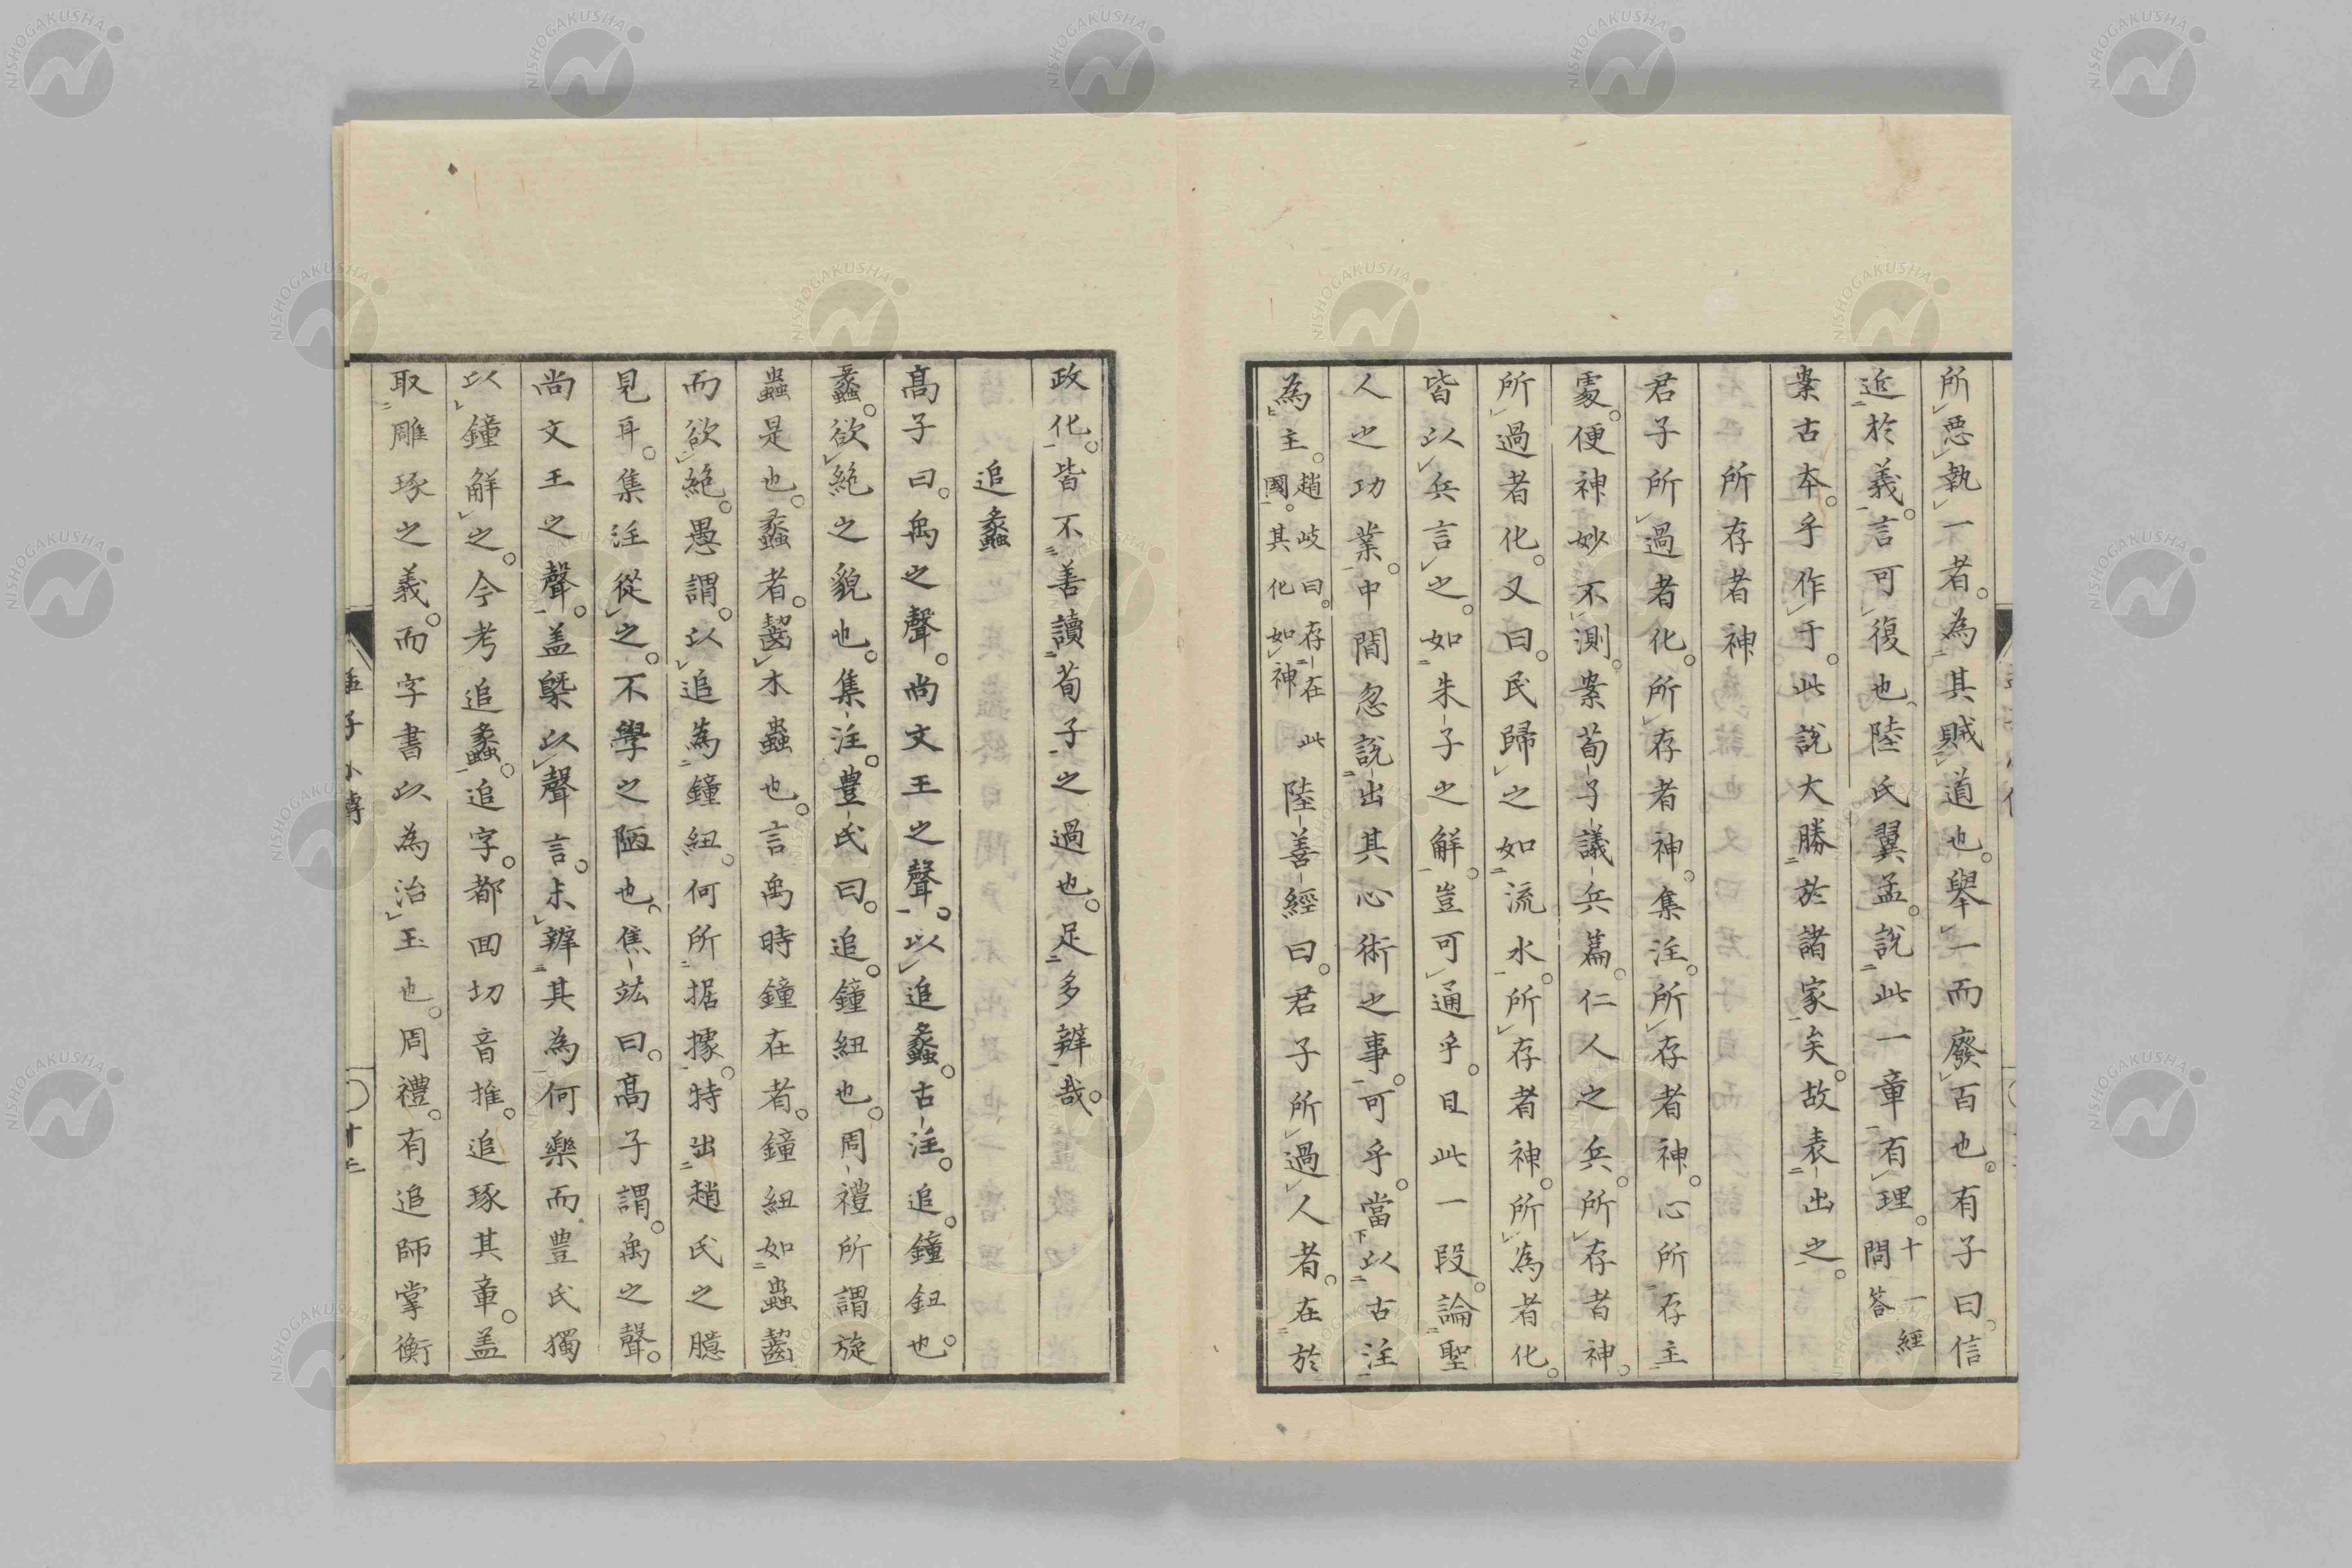 所惡執一者。為其賊道也。舉一而廢百也。有子曰。信
近於義。言可復也。陸氏翼孟。說此一章有理。十一經問答
案古本。乎作于。此說大勝於諸家矣。故表出之。
所存者神
君子所過者化。所存者神。集注。所存者神。心所存主
處。便神妙不測。案荀子議兵篇。仁人之兵。所存者神。
所過者化。又曰。民歸之如流水。所存者神。所為者化。
皆以兵言之。如朱子之解。豈可通乎。且此一段。論聖
人之功業。中間忽說出其心術之事。可乎。當以古注
為主。趙岐曰。存在此國。其化如神 陸善經曰。君子所過人者。在於
政化。皆不善讀荀子之過也。足多辨哉。
追蠡
高子曰。禹之聲。尚文王之聲。以追蠡。古注。追。鐘鈕也。
蠡。欲絕之貌也。集注。豐氏曰。追。鐘紐也。周禮所謂旋
蟲是也。蠡者。齧木蟲也。言禹時鐘在者。鐘紐如蟲齧
而欲絕。愚謂。以追為鐘紐。何所据據。特出趙氏之臆
見耳。集注從之。不學之陋也。焦竑曰。高子謂。禹之聲。
尚文王之聲。盖槩以聲言。未辨其為何樂而豐氏獨
以鐘解之。今考追蠡。追字。都回切音推。追琢其章。盖
取雕琢之義。而字書以為治玉也。周禮。有追師掌衡
NISHOGAKUSHA